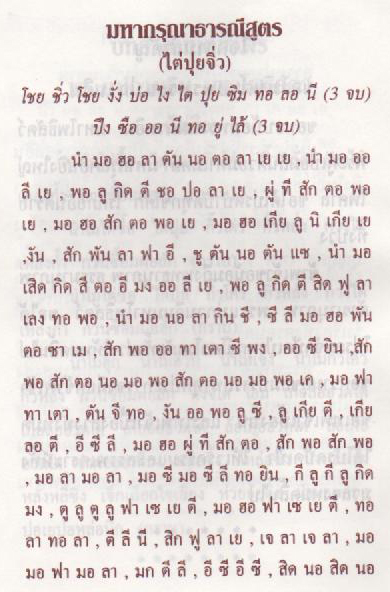 มหากรุณาธารณีสูตร
(ไต่ปุยจิ่ว)
โชย ชิ่ว โชย งั่ง บ่อ ไง ไต ปุย ซิม ทอ ลอ นี (3 จบ)
ปึง ซือ ออ นี ทอ ยู่ ไล้ (3 จบ)
นำ มอ ฮอ ลา ตัน นอ ตอ ลา เย เย , นำ มอ ออ
ลี เย , พอ ลู กิด ตี ชอ ปอ ลา เย , ผู่ ที สัก ตอ พอ
เย , มอ ฮอ สัก ตอ พอ เย , มอ ฮอ เกีย ลู นิ เกีย เย
,งัน , สัก พัน ลา ฟา อี , ชู ตัน นอ ตัน แช , นำ มอ
เสิด กิด สี ตอ อี มง ออ ลี เย , พอ ลู กิด ตี สิด ฟู ลา
เลง ทอ พอ , นำ มอ นอ ลา กิน ซี , ซี ลี มอ ฮอ พัน
ตอ ซา เม , สัก พอ ออ ทา เตา ซี พง , ออ ซี ยิน ,สัก
พอ สัก ตอ นอ มอ พอ สัก ตอ นอ มอ พอ เค , มอ ฟา
ทา เตา , ตัน จี ทอ , งัน ออ พอ ลู ซี , ลู เกีย ตี , เกีย
ลอ ตี , อี ซี ลี , มอ ฮอ ผู่ ที สัก ตอ , สัก พอ สัก พอ
, มอ ลา มอ ลา , มอ ซี มอ ซี ลี ทอ ยิน , กี ลู กี ลู กิด
มง , ตู ลู ตู ลู ฟา เซ เย ตี , มอ ฮอ ฟา เซ เย ตี , ทอ
ลา ทอ ลา , ตี ลี นี , สิก ฟู ลา เย , เจ ลา เจ ลา , มอ
มอ ฟา มอ ลา , มก ตี ลี , อี ซี อี ซี , สิด นอ สิด นอ